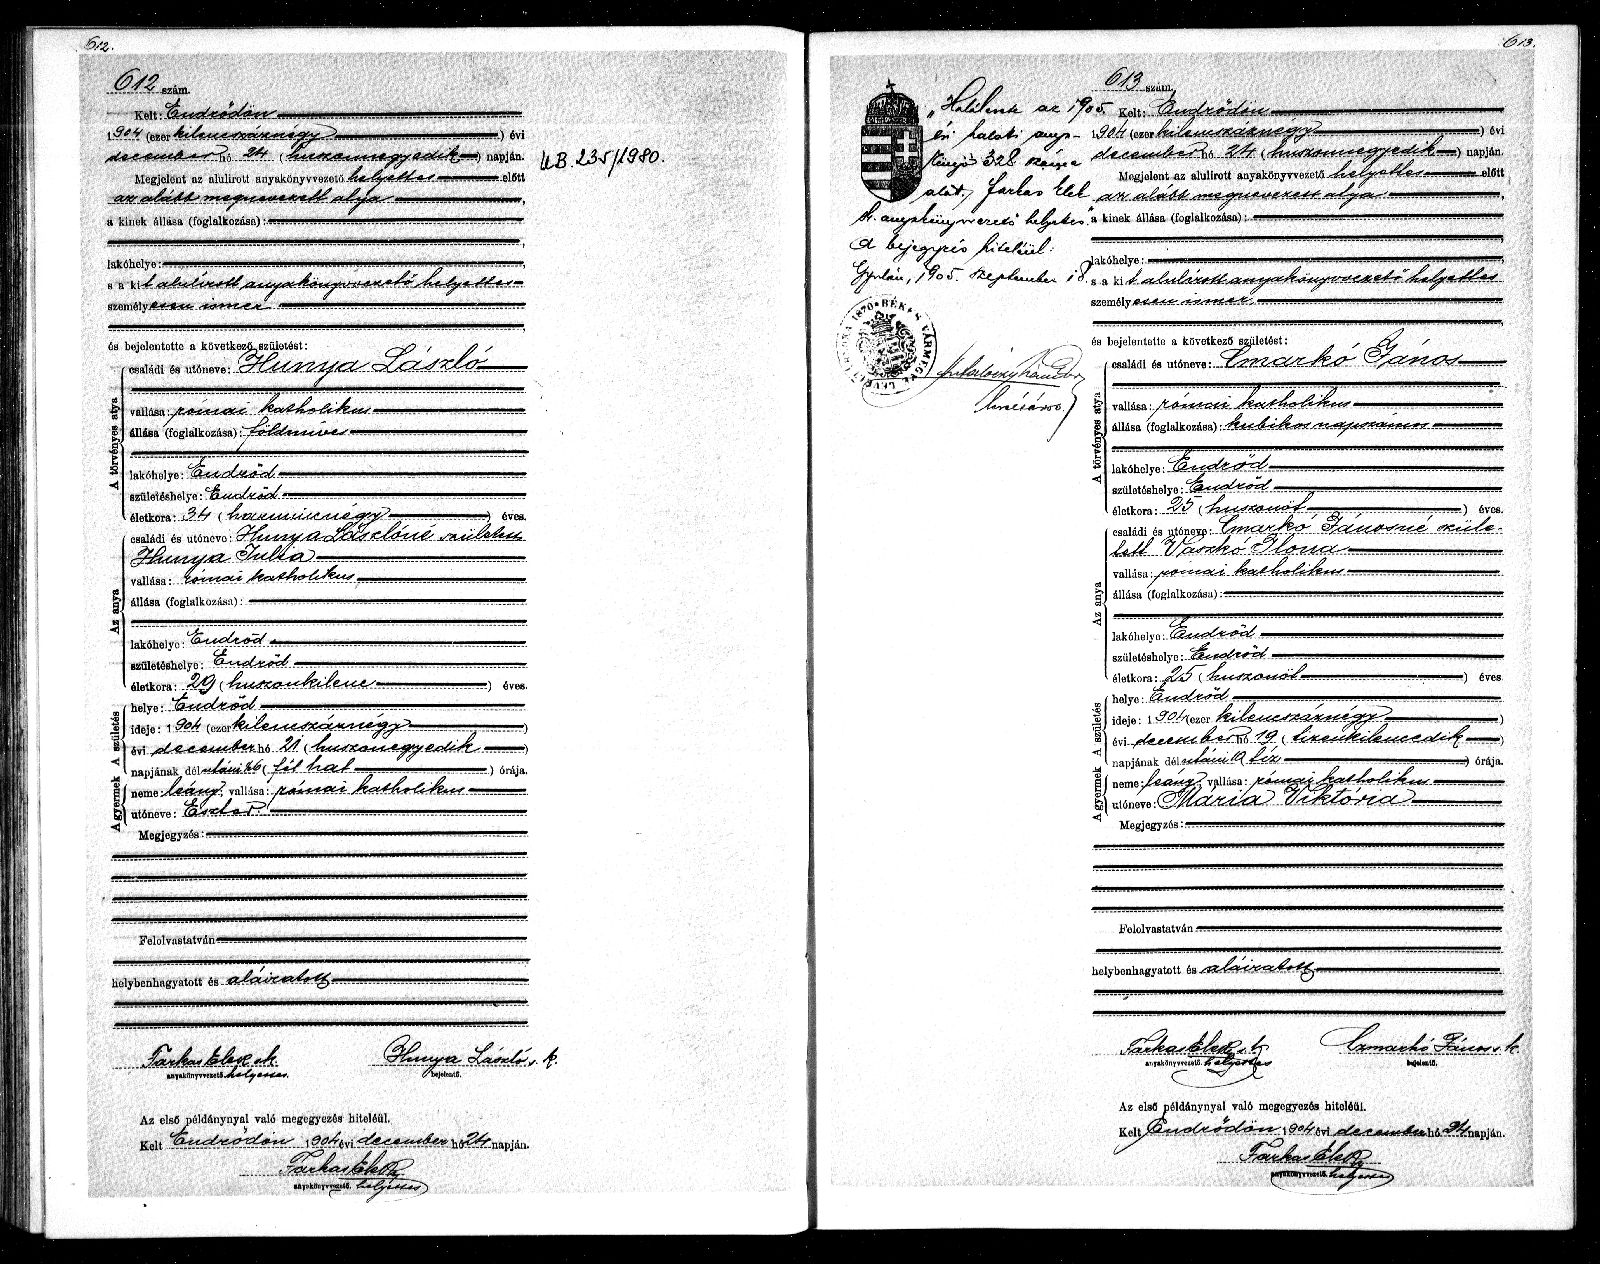 612.
612 szám.
Kelt: Endrődön
1904 (ezer kilencszáznégy) évi
december hó 24 (huszonnegyedik) napján.
Megjelent az alulirott anyakönyvvezető helyettes előtt
az alább megnevezett atya,
a kinek állása (foglalkozása):
lakóhelye:
s a kit alulírott anyakönyvvezető helyettes
személyesen ismer
és bejelentette a következő születést:
A törvényes atya
családi és utóneve: Hunya László
vallása: római katholikus
állása (foglalkozása): földmüves
lakóhelye: Endrőd
születéshelye: Endrőd
életkora: 34 (harmincnégy) éves.
Az anya
családi és utóneve: Hunya Lászlóné született
Hunya Julia
vallása: római katholikus
állása (foglalkozása):
lakóhelye: Endrőd
születéshelye: Endrőd
életkora: 29 (huszonkilenc) éves.
A születés
helye: Endrőd
ideje: 1904 (ezer kilencszáznégy)
évi december hó 21 (huszonegyedik)
napjának délutáni ½6 (fél hat) órája.
A gyermek
neme: leány, vallása: római katholikus
utóneve: Eszter
Megjegyzés:
Felolvastatván
helybenhagyatott és aláiratott
Farkas Elek s.k. Hunya László s.k.
anyakönyvvezető helyettes bejelentő.
Az első példánynyal való megegyezés hiteléül.
Kelt Endrődön 1904 évi december hó 24 napján.
Farkas Elek
anyakönyvvezető. helyettes
U.B. 235/1980.
613.
„Haláleset az 1905
évi halotti anya-
könyv 328 száma
alatt, Farkas Elek
h. anyakönyvvezető helyettes."
A bejegyzés hiteléül:
Gyulán, 1905. szeptember 18.
1870 BÉKÉS VÁRMEGYE LEVÉLTÁRA
613 szám.
Kelt: Endrődön
1904 (ezer kilencszáznégy) évi
december hó 24 (huszonnegyedik) napján.
Megjelent az alulirott anyakönyvvezető helyettes előtt
az alább megnevezett atya,
a kinek állása (foglalkozása):
lakóhelye:
s a kit alulírott anyakönyvvezető helyettes
személyesen ismer,
és bejelentette a következő születést:
A törvényes atya
családi és utóneve: Cmarkó János
vallása: római katholikus
állása (foglalkozása): kubikos napszámos
lakóhelye: Endrőd
születéshelye: Endrőd
életkora: 25 (huszonöt) éves.
Az anya
családi és utóneve: Cmarkó Jánosné szüle-
tett Vaszkó Ilona
vallása: római katholikus
állása (foglalkozása):
lakóhelye: Endrőd
születéshelye: Endrőd
életkora: 25 (huszonöt) éves.
A születés
helye: Endrőd
ideje: 1904 (ezer kilencszáznégy)
évi december hó 19 (tizenkilencedik)
napjának délutáni 10 tiz) órája.
A gyermek
neme: leány vallása: római katholikus
utóneve: Mária Viktória
Megjegyzés:
Felolvastatván
helybenhagyatott és aláiratott
Farkas Elek s.k. Czmarkó János s.k.
anyakönyvvezető. helyettes bejelentő.
Az első példánynyal való megegyezés hiteléül.
Kelt Endrődön 1904 évi december hó 24 napján.
Farkas Elek
anyakönyvvezető. helyettes